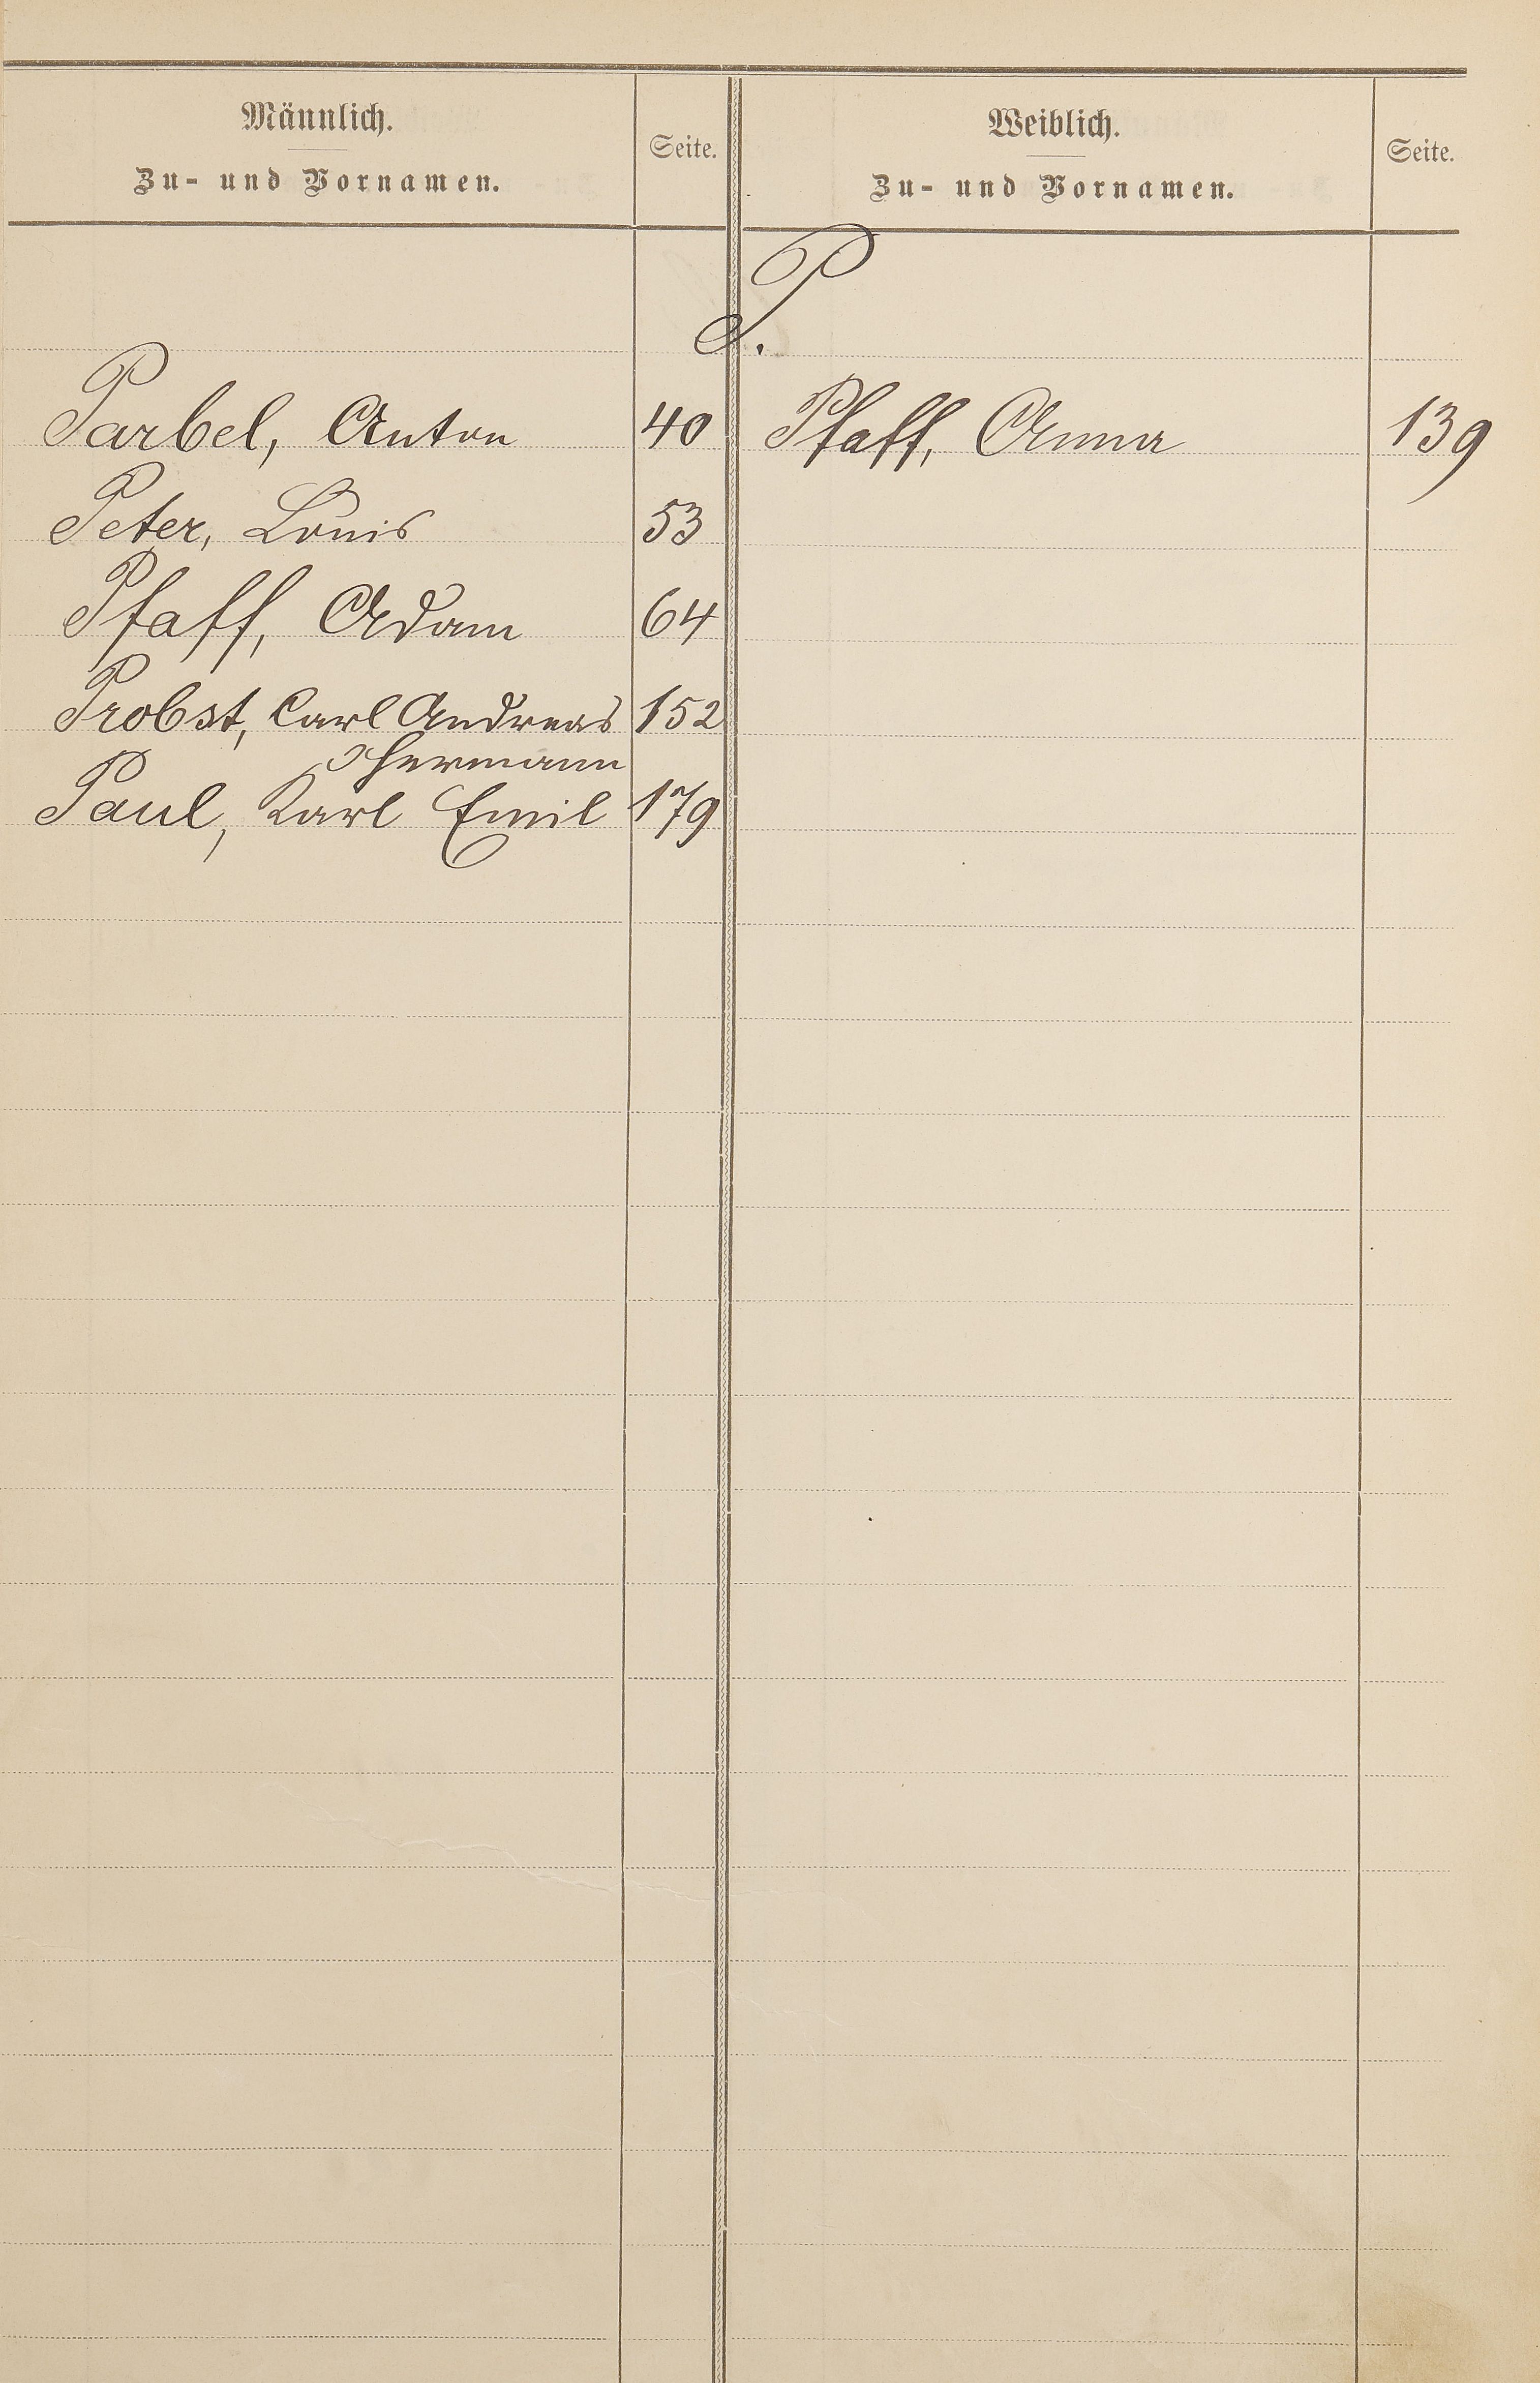 Männlich.
Zu- und Vornamen.
Seite.
Weiblich.
Zu- und Vornamen.
Seite.
P.
Parbel, Anton 40
Pfaff, Anna 139
Peter, Louis 53
Pfaff, Adam 64
Probst, Carl Andreas 152
Hermann
Paul, Karl Emil 179